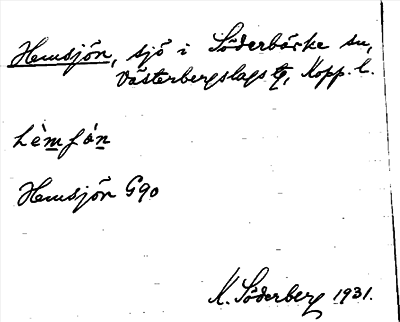 Hemsjön, sjö i Söderbärke sn,
Västerbergslags tg, Kopp. l.
Hemsjön G90
K. Söderberg 1931.